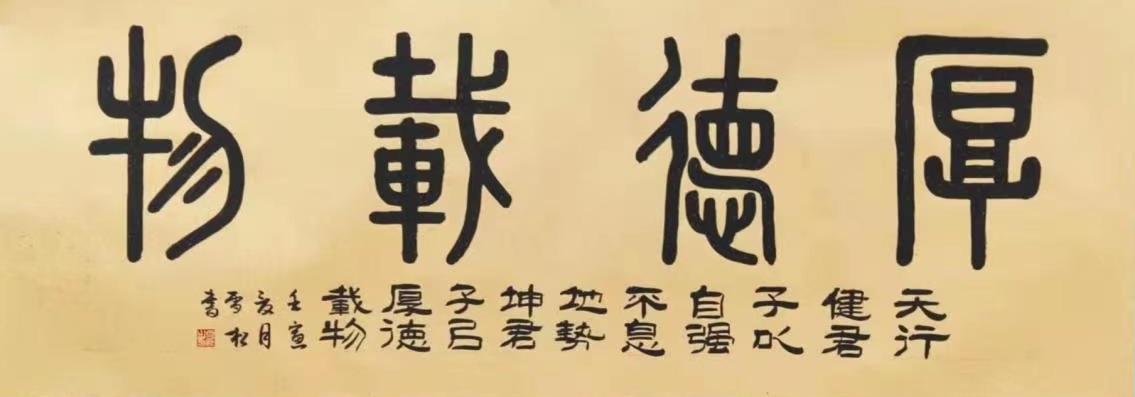 厚德載物
天行
健君
子以
自强
不息
地勢
坤君
子㠯
厚德
載物
壬寅
夏月
雪松
書